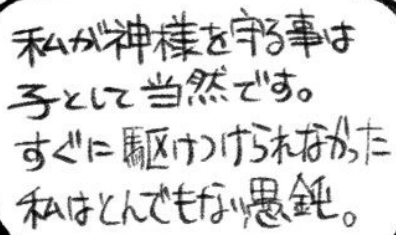 私が神様を守る事は
子として当然です。
すぐに駆けつけられなかった
私はとんでもない愚鈍。